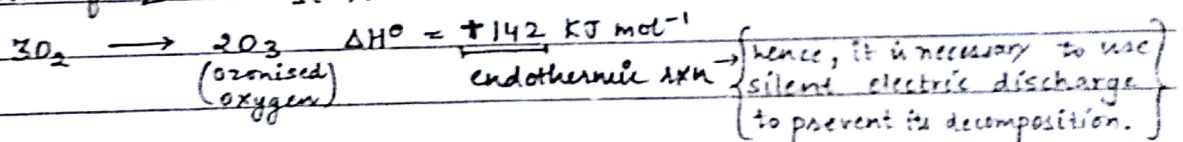 3O₂ ⟶ 2O₃ ΔH° = +142 KJ mol⁻¹
(ozonised oxygen)
endothermic rxn → {hence, it is necessary to use
silent electric discharge
to prevent its decomposition.}